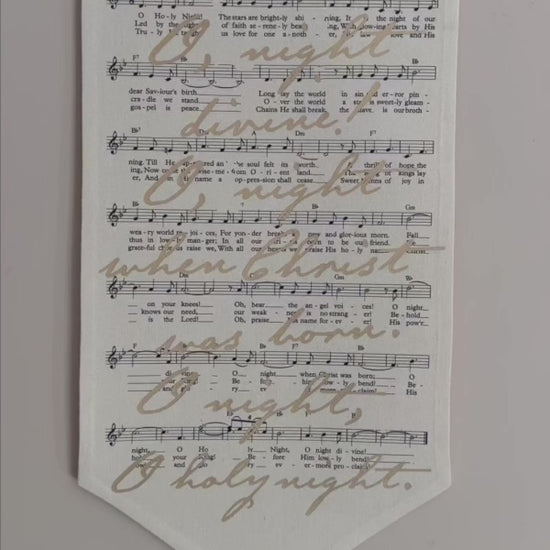 O Ho-ly Night! The stars are bright-ly shi - ning, It the night of our
Led by the of faith se-rene-ly beam - ing, With glow-ing hearts by His
Tru-ly He taught us love for one a-noth - er, His law love and His
O, night
F7 Bb Eb Bb
dear Sav-iour's birth. Long lay the world in sin and er-ror pin -
cra-dle we stand. O-ver the world a star is sweet-ly gleam -
gos-pel is peace. Chains He shall break, the slave is our broth -
divine!
Bb7 Dm A7 Dm F7
ning. Till He ap-peared and the soul felt its worth. A thrill of hope the
ing, Now come the wise-men from O-ri-ent land. The King of kings lay
er, And in His name a op-pression shall cease. Sweet hymns of joy in
O, night
Bb F7 Bb Gm
wea-ry world re-joi-ces, For yon-der breaks a new and glorious morn. Fall
thus in low-ly man-ger; In all our born to be our friend. He
grate-ful chorus raise we, With all our hearts we praise His ho-ly name. Christ
when Christ
Dm Gm Bb
on your knees! Oh, hear the an-gel voi-ces! O night
knows our need, our weak - is no stran-ger! Be-hold
is the Lord! Oh, praise His name for-ev - er! His pow'r
was born.
F7 Bb Eb Bb F7 Bb
di - vine, O night when Christ was born; O
your King! Be - fore him low-ly bend! Be -
and glo ry ev - er - more claim! His
O night,
F7 Bb Eb Bb F7 Bb
night, O Ho ly Night, O night di-vine!
your King! Be-fore Him low-ly bend!
and glo ry ev-er-more pro-claim!
O holy night.